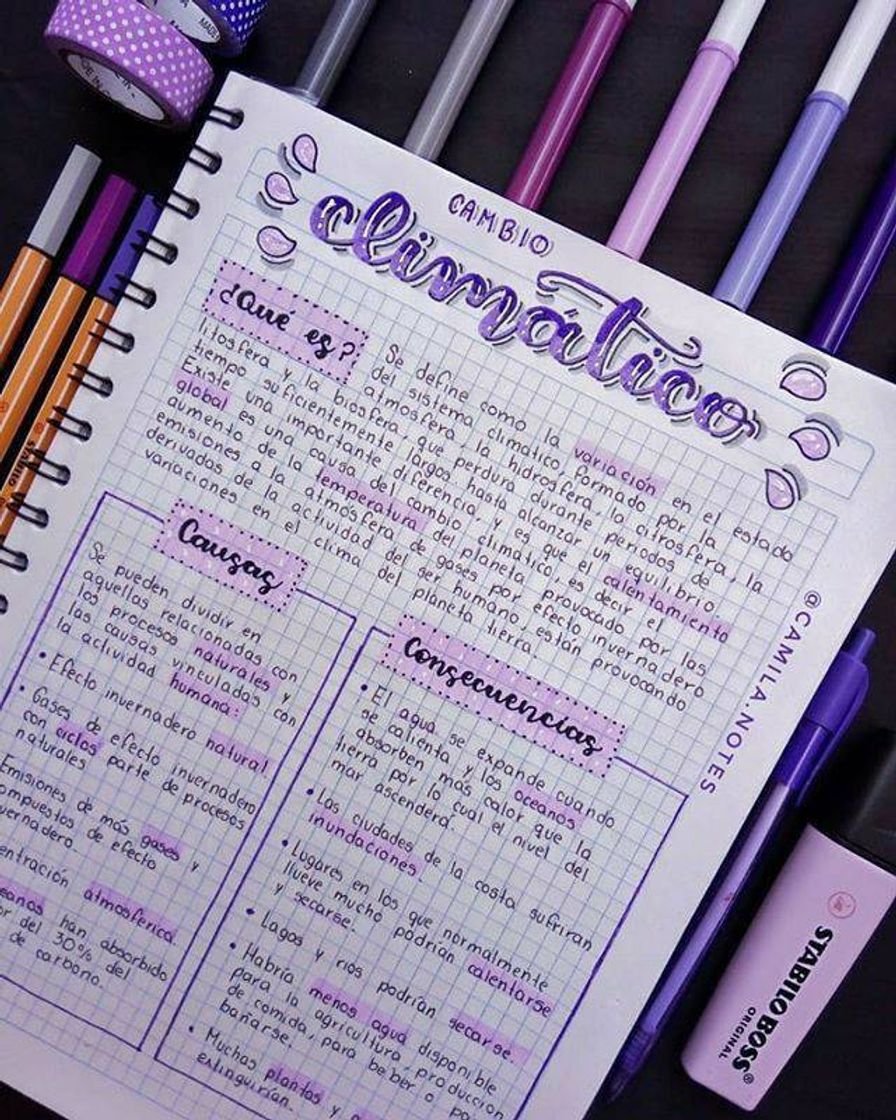 CAMBIO
climático
¿Qué es?
Se define como la variación en el estado
del sistema climático, formado por la
atmósfera, la hidrosfera, la citrosfera, la
litosfera y la biosfera, que perdura durante periodos de
tiempo suficientemente largos hasta alcanzar un equilibrio.
Existe una importante diferencia, y es que el calentamiento
global es una causa del cambio climático, es decir el
aumento de la temperatura del planeta provocado por las
emisiones a la atmósfera de gases por efecto invernadero
derivadas de la actividad del ser humano, están provocando
variaciones en el clima del planeta tierra.
Causas
Se pueden dividir en
aquellas relacionadas con
los procesos naturales y
las causas vinculadas con
la actividad humana:
• Efecto invernadero natural
• Gases de efecto invernadero
con ciclos parte de procesos
naturales
Emisiones de más gases y
compuestos de efecto
atmosférica.
han absorbido
del 30% del
de carbono.
Consecuencias
• El agua se expande cuando
se calienta y los oceanos
absorben más calor que la
tierra por lo cual el nivel del
mar ascenderá.
• Las ciudades de la costa sufriran
inundaciones.
• Lugares en los que normalmente
llueve mucho podrían calentarse
y secarse.
• Lagos y rios podrían secarse.
• Habría menos agua disponible
para la agricultura, producción
de comida, para beber o para
bañarse.
• Muchas plantas y
extinguirian.
@CAMILA.NOTES
STABILO BOSS®
ORIGINAL
STABILO
MADE IN